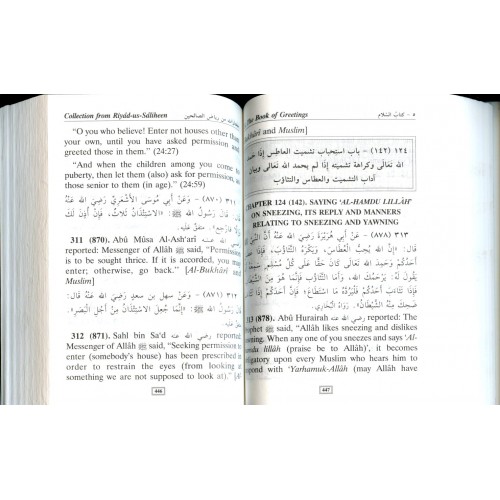 Collection from Riyâd-us-Sâliheen
من رياض الصالحين
"O you who believe! Enter not houses other than
your own, until you have asked permission and
greeted those in them." (24:27)
"And when the children among you come to
puberty, then let them (also) ask for permission, as
those senior to them (in age)." (24:59)
(٨٧٠) - وَعَنْ أَبِي مُوسَى الأَشْعَرِيِّ رَضِيَ اللهُ عَنْهُ
قَالَ: قَالَ رَسُولُ اللهِ ﷺ: «الاسْتِئْذَانُ ثَلَاثٌ، فَإِنْ أُذِنَ لَكَ
فَارْجِعْ». متفقٌ عليه.
311 (870). Abû Mûsa Al-Ash'ari رضي الله عنه reported:
Messenger of Allâh ﷺ said, "Permission
is to be sought thrice. If it is accorded, you may
enter; otherwise, go back." [Al-Bukhâri and
Muslim]
(٨٧١) - وَعَنْ سهلِ بنِ سعدٍ رَضِيَ اللهُ عَنْهُ قَالَ:
قَالَ رَسُولُ اللهِ ﷺ: «إنَّمَا جُعِلَ الاسْتِئْذَانُ مِنْ أَجْلِ الْبَصَرِ».
312 (871). Sahl bin Sa'd رضي الله عنه reported:
Messenger of Allâh ﷺ said, "Seeking permission to
enter (somebody's house) has been prescribed in
order to restrain the eyes (from looking at
something we are not supposed to look at)."
446
The Book of Greetings
٥ - كتاب السَّلام
Bukhâri and Muslim]
١٢٤ (١٤٢) - باب استحباب تشميت العاطس إذا حمد
الله تعالى وكراهة تشميته إذا لم يحمد الله تعالى وبيان
آداب التشميت والعطاس والتثاؤب
CHAPTER 124 (142). SAYING 'AL-HAMDU LILLÂH'
ON SNEEZING, ITS REPLY AND MANNERS
RELATING TO SNEEZING AND YAWNING
٣١٣ (٨٧٨) - عَنْ أَبِي هُرَيْرَةَ رَضِيَ اللهُ عَنْهُ أَنَّ النَّبِيَّ ﷺ
قَالَ: «إِنَّ اللهَ يُحِبُّ الْعُطَاسَ، وَيَكْرَهُ التَّثَاؤُبَ، فَإِذَا عَطَسَ
أَحَدُكُمْ وَحَمِدَ اللهَ تَعَالَى كَانَ حَقًّا عَلَى كُلِّ مُسْلِمٍ سَمِعَهُ أَنْ
يَقُولَ لَهُ: يَرْحَمُكَ اللهُ، وَأَمَّا التَّثَاؤُبُ فَإِنَّمَا هُوَ مِنَ الشَّيْطَانِ،
فَإِذَا تَثَاءَبَ أَحَدُكُمْ فَلْيَرُدَّهُ مَا اسْتَطَاعَ، فَإِنَّ أَحَدَكُمْ إِذَا تَثَاءَبَ
ضَحِكَ مِنْهُ الشَّيْطَانُ». رَوَاهُ الْبُخَارِي.
313 (878). Abû Hurairah رضي الله عنه reported: The
Prophet ﷺ said, "Allâh likes sneezing and dislikes
yawning. When any one of you sneezes and says 'Al-
hamdu lillâh (praise be to Allâh)', it becomes
obligatory upon every Muslim who hears him to
respond with 'Yarhamuk-Allâh (may Allâh have
447